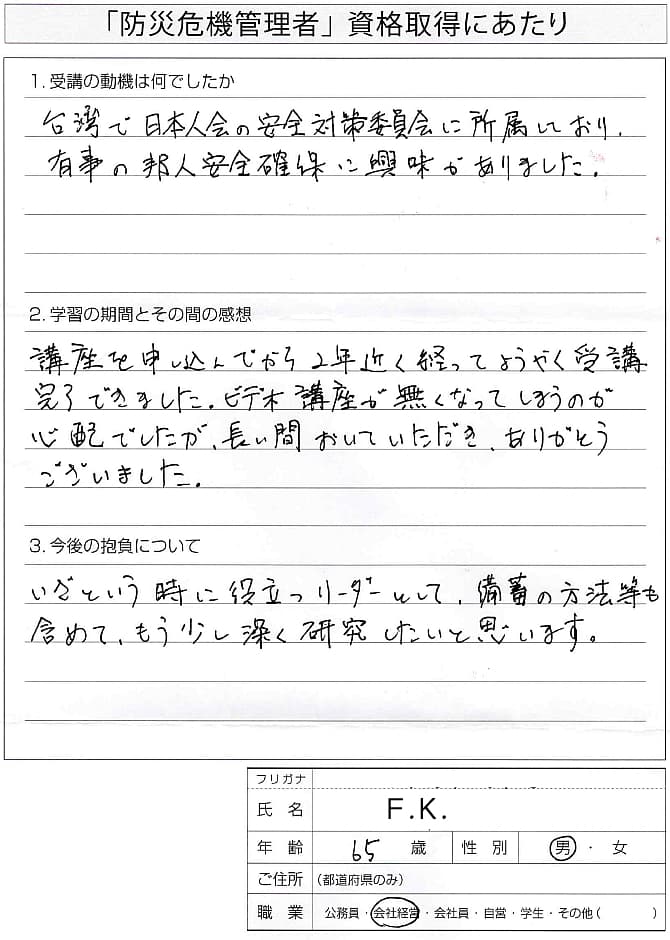 「防災危機管理者」資格取得にあたり
1. 受講の動機は何でしたか
台湾で日本人会の安全対策委員会に所属しており、
有事の邦人安全確保に興味がありました。
2. 学習の期間とその間の感想
講座を申し込んでから2年近く経ってようやく受講
完了できました。ビデオ講座が無くなってしまうのが
心配でしたが、長い間おいていただき、ありがとう
ございました。
3. 今後の抱負について
いざという時に役立つリーダーとして、備蓄の方法等も
含めて、もう少し深く研究したいと思います。
フリガナ
氏 名 F.K.
年 齢 65 歳 性 別 男 ・ 女
ご住所 (都道府県のみ)
職 業 公務員・会社経営・会社員・自営・学生・その他( )